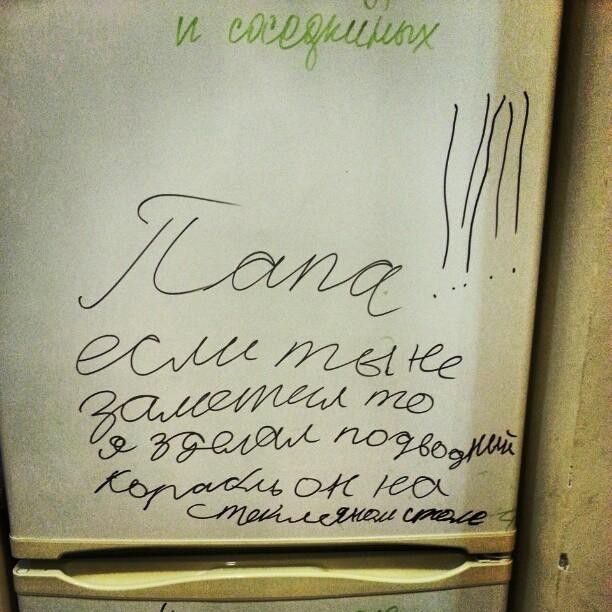 и соседкиных
Папа!!!!!
если ты не
заметил то
я зделал подводный
корабль он на
стекляном столе